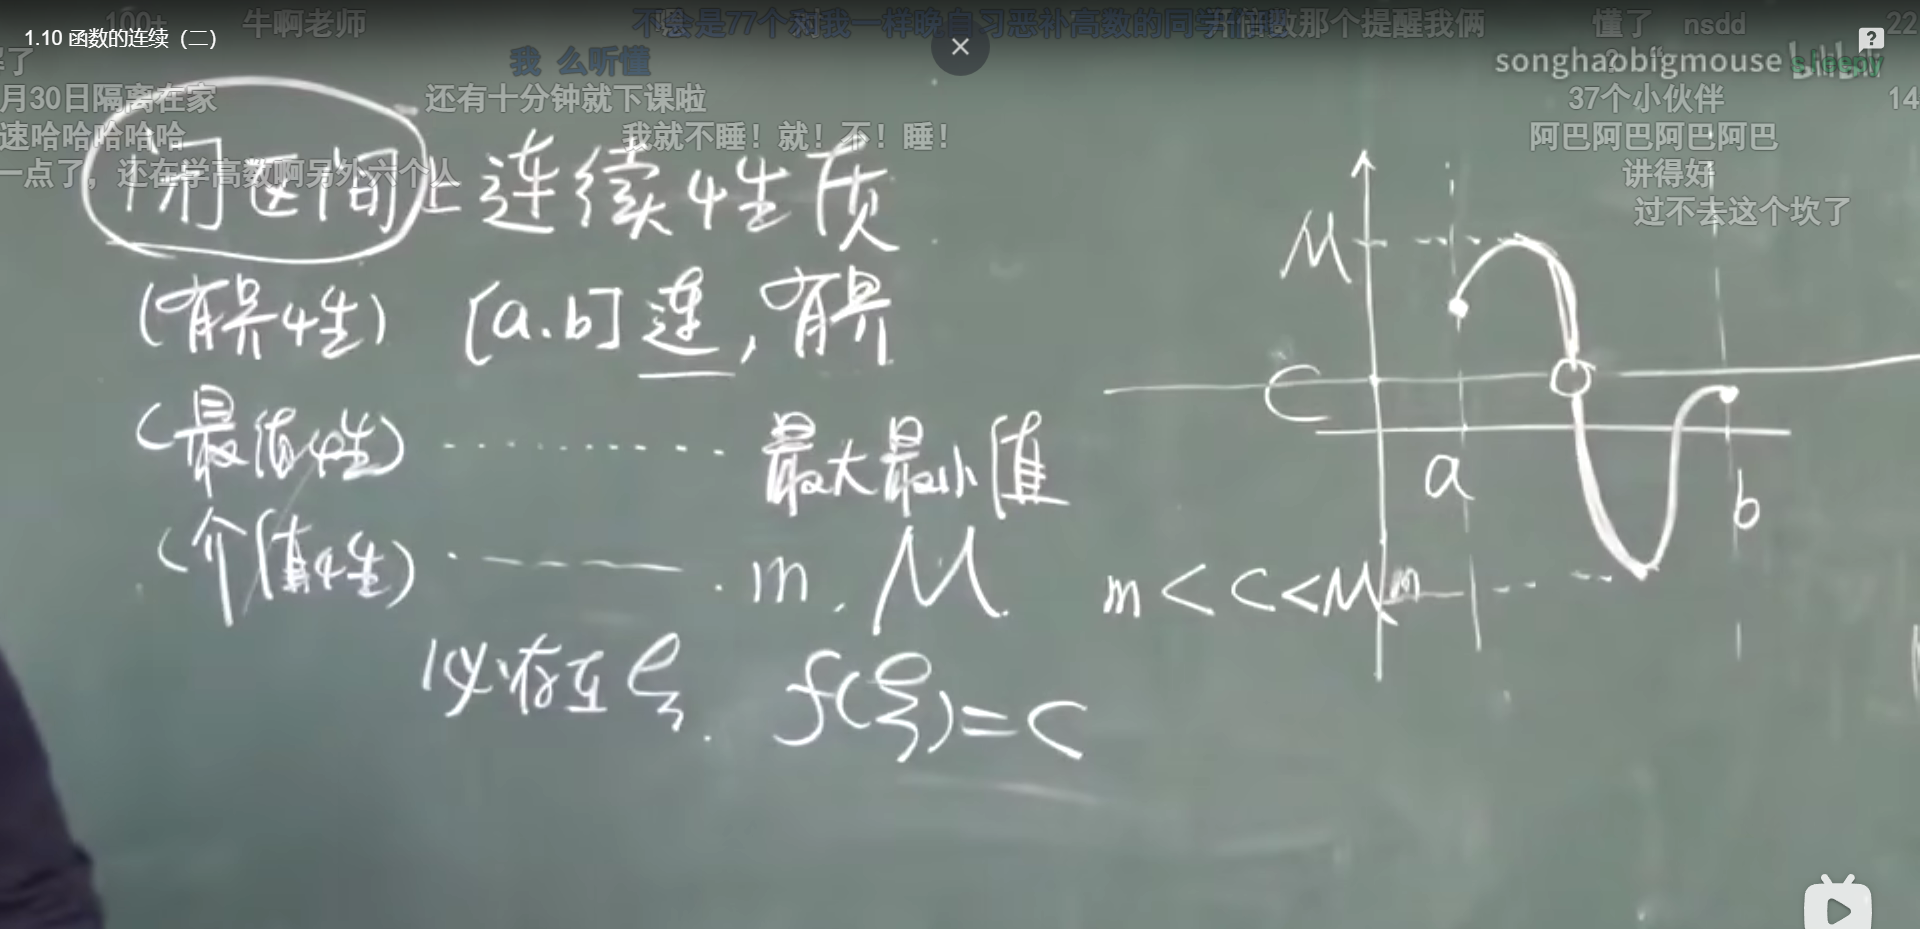 100+
牛啊老师
不愧是77个对我一样晚自习恶补高数的同学
开倍数那个提醒我俩
懂了
nsdd
22
1.10 函数的连续（二）
解了
我 么听懂
songhaobigmouse bilibili
sleepy
月30日隔离在家
还有十分钟就下课啦
37个小伙伴
14
速哈哈哈哈哈
我就不睡！就！不！睡！
阿巴阿巴阿巴阿巴
一点了，还在学高数啊另外六个人
讲得好
过不去这个坎了
闭区间上连续性质
(有界性) [a.b]连，有界
(最值性) ········· 最大最小值
(介值性) ·———. m. M. m<C<M
必存在ξ. f(ξ)=C
M
C
a
b
m